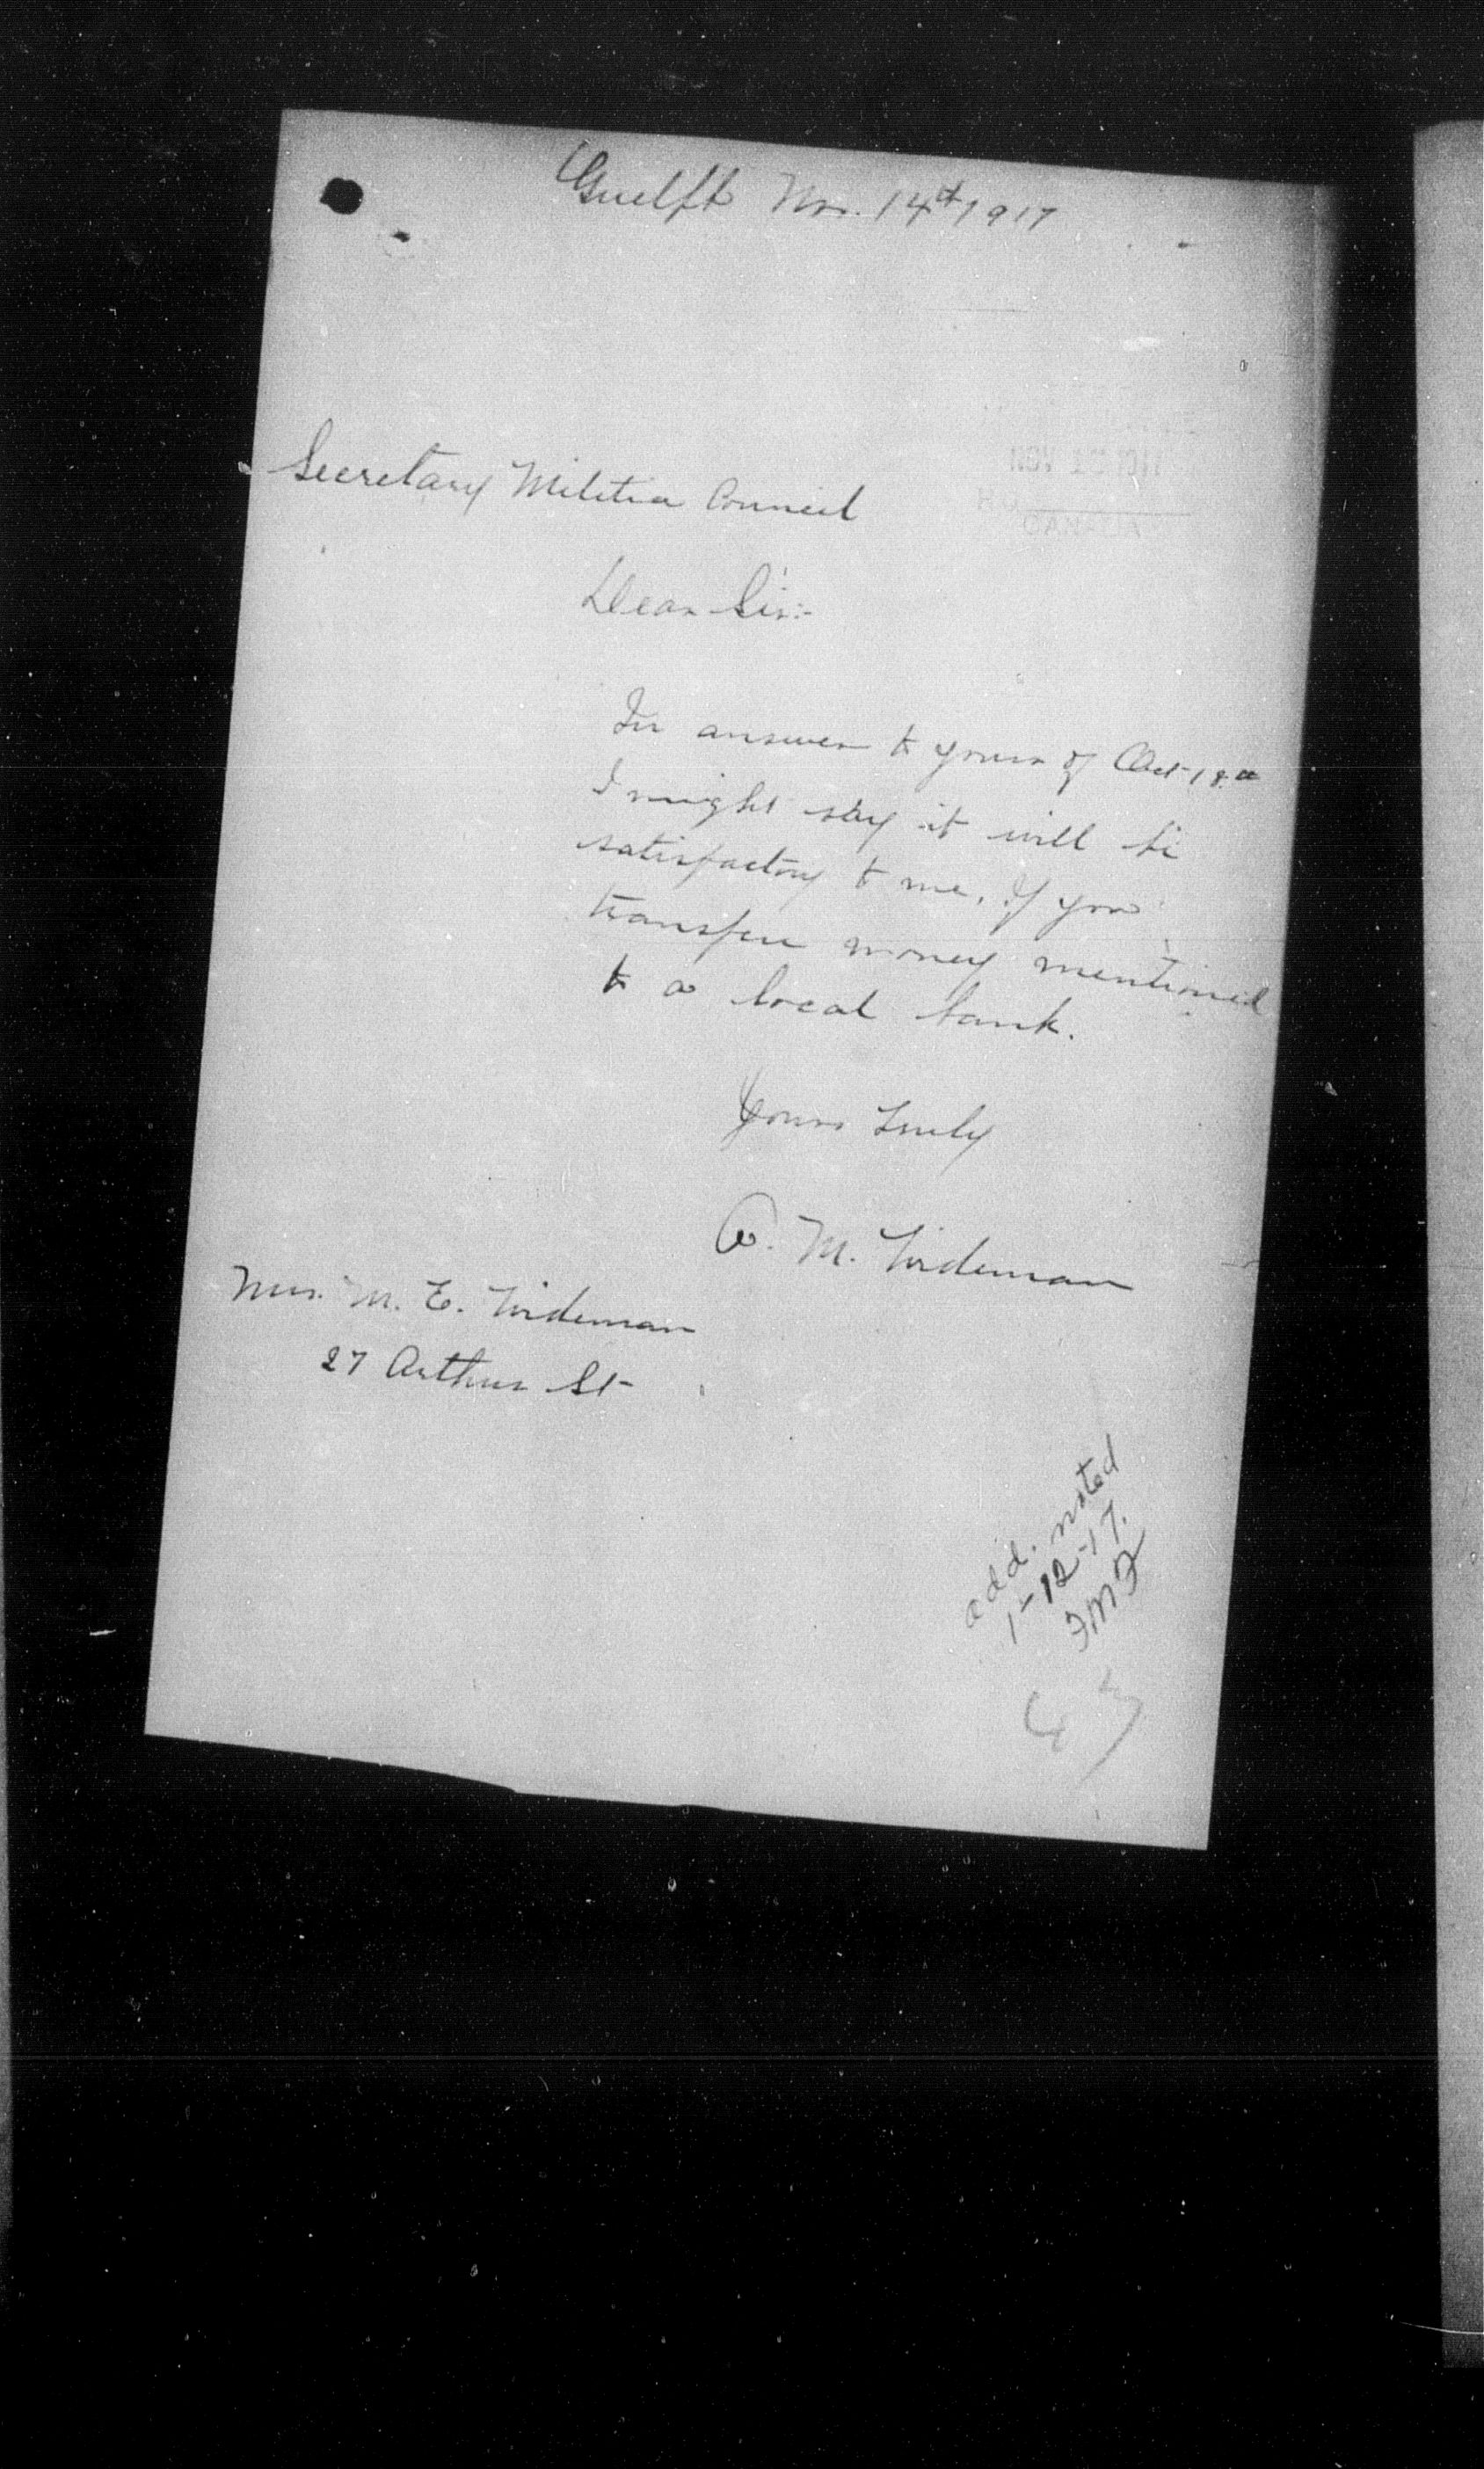 Guelph Nov. 14th 1917
Secretary Militia Council
Dear Sir:-
In answer to yours of Oct 18th
I might say it will be
satisfactory to me, if you
transfer money mentioned
to a local bank.
Yours Truly
A. M. Tindeman
Mrs. M. E. Tindeman
27 Arthur St
add. noted
1-12-17.